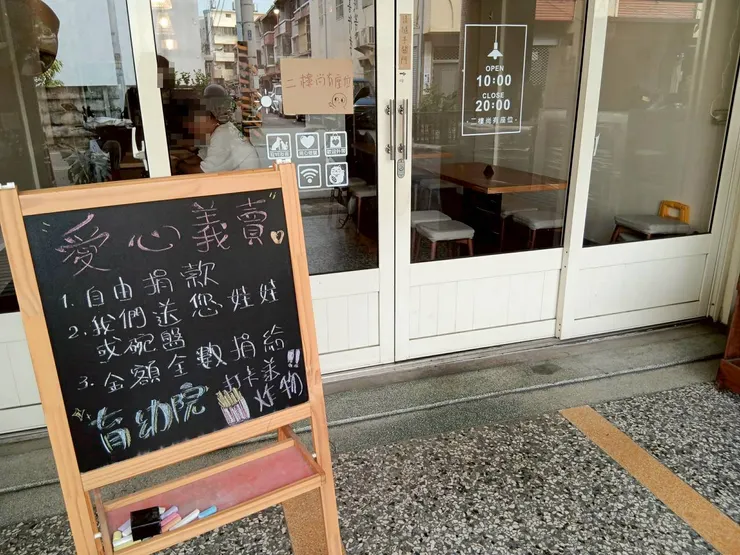 愛心義賣
1. 自由捐款
2. 我們送您娃娃
或碗盤
3. 金額全數捐給
育幼院
打卡送
炸物!!
二樓尚有座位
OPEN
10:00
CLOSE
20:00
·二樓尚有座位·